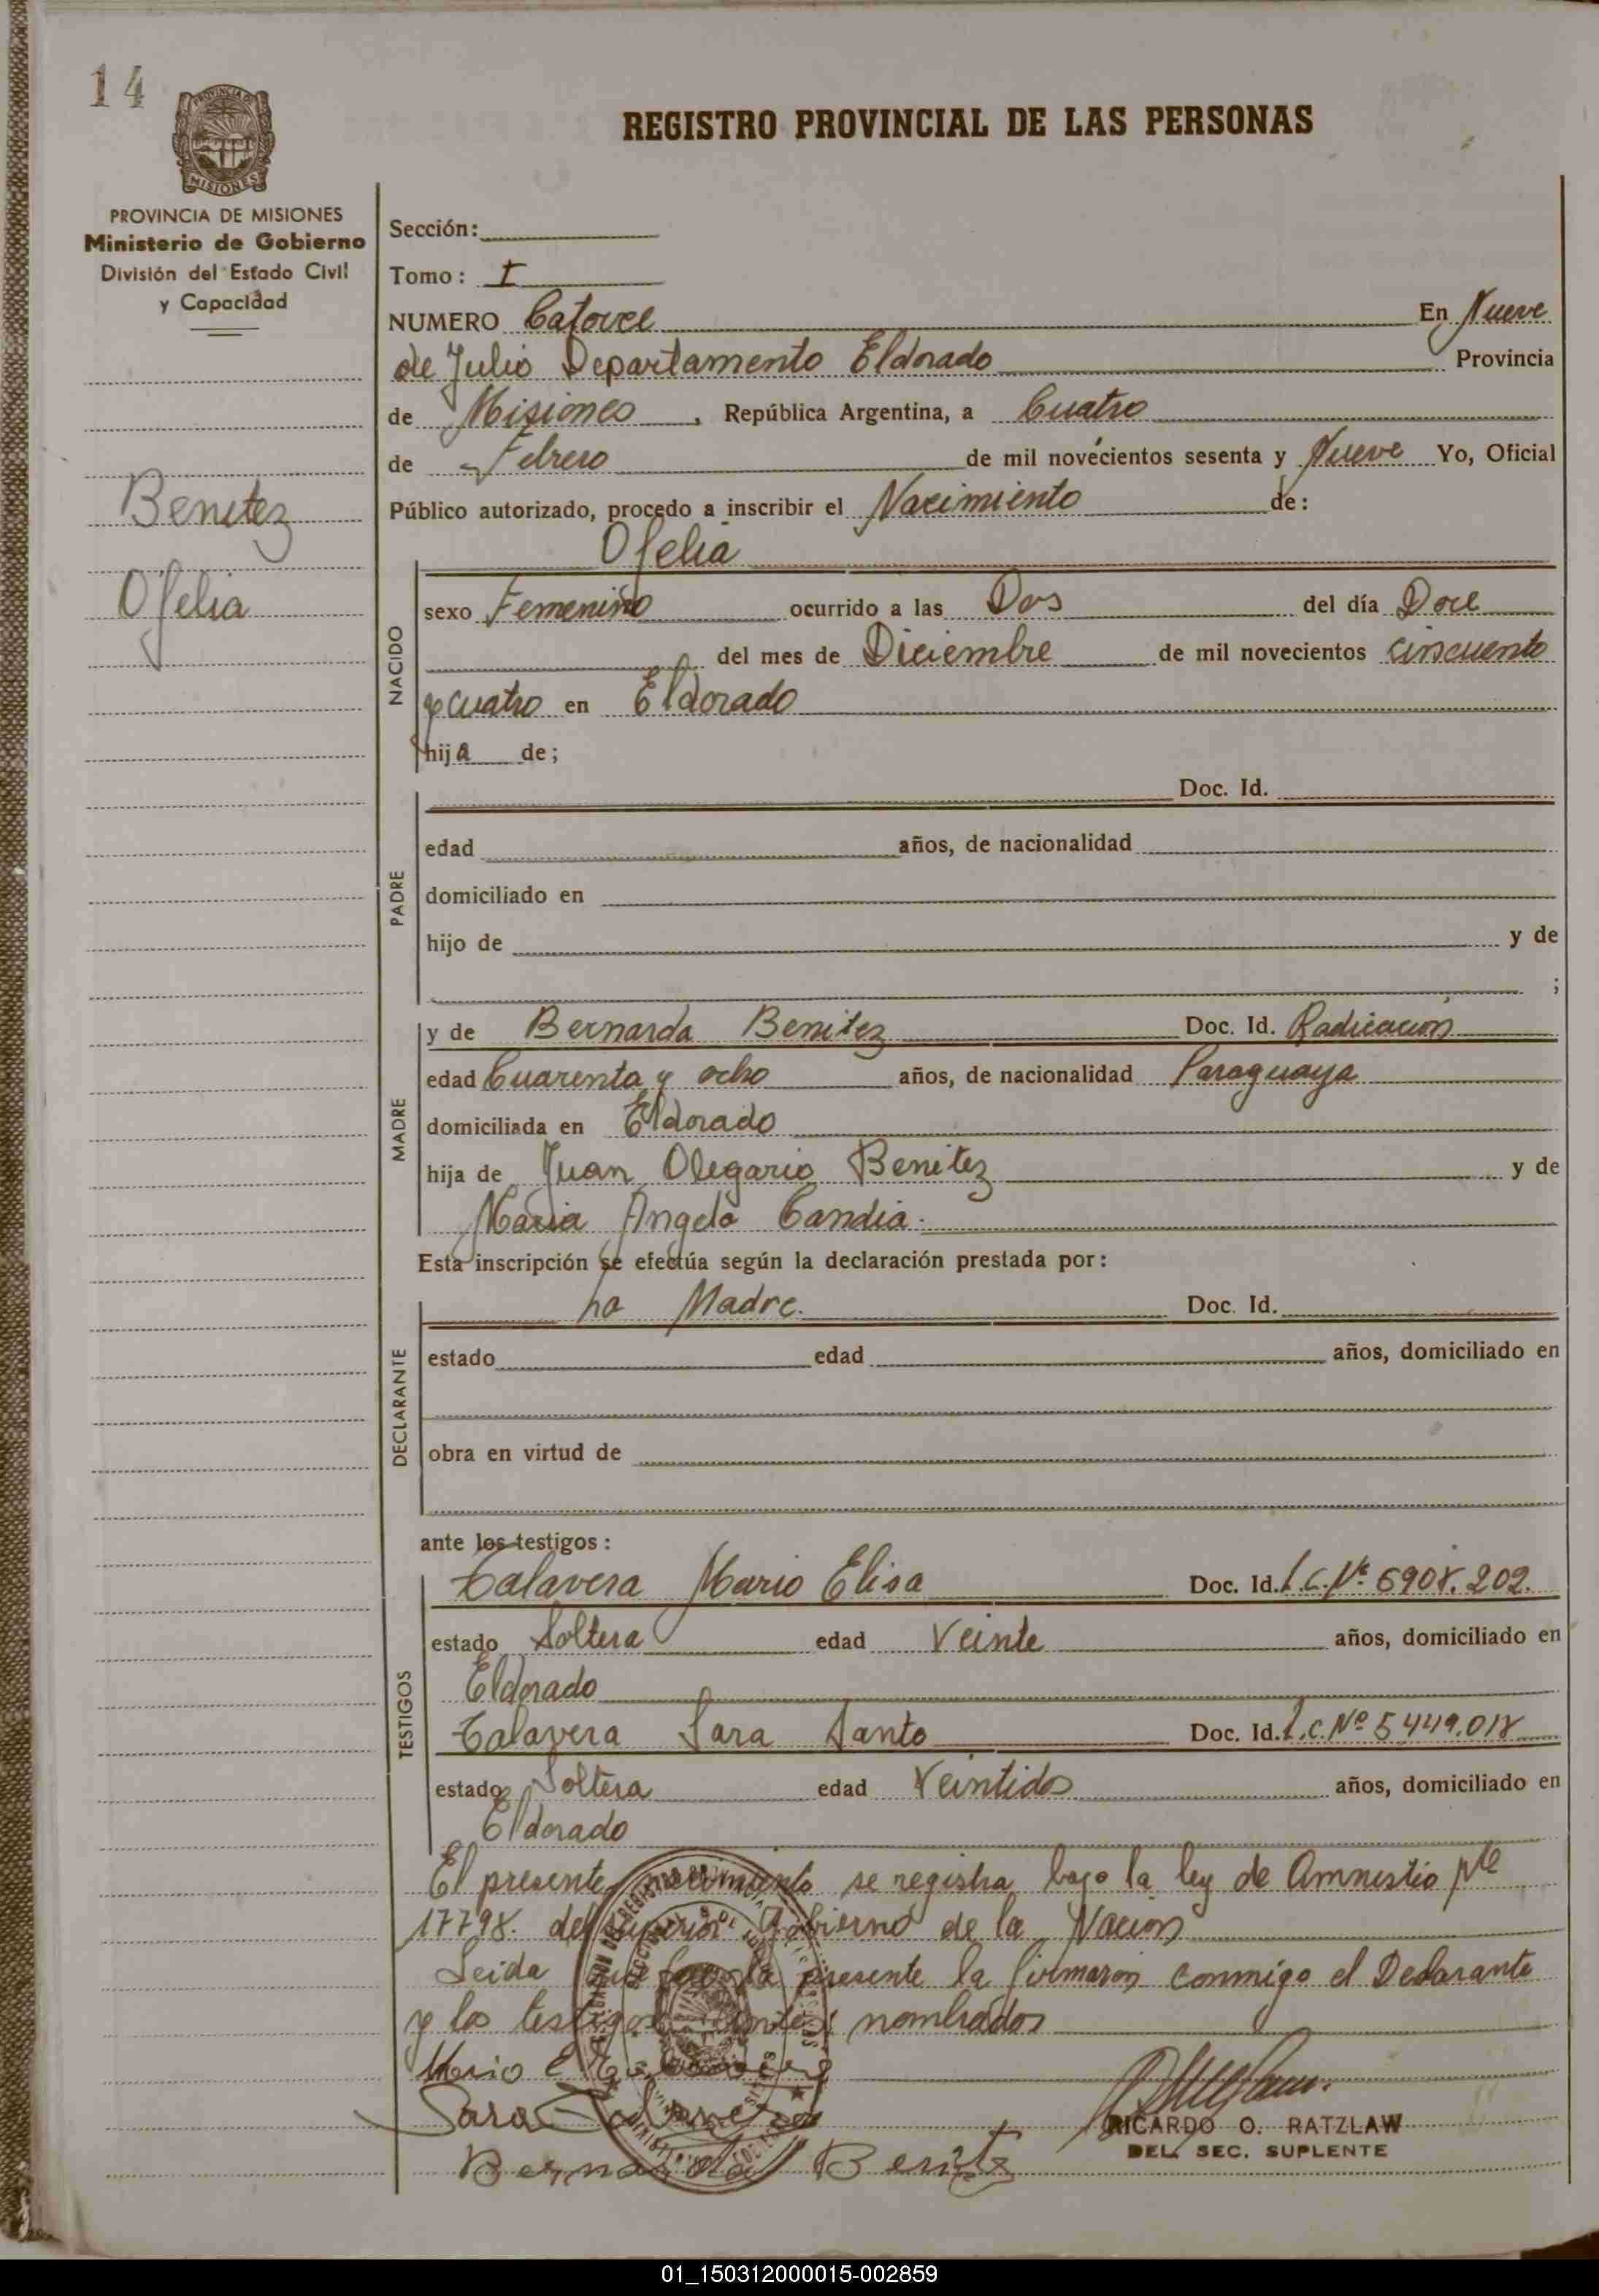 14
PROVINCIA DE
MISIONES
REGISTRO PROVINCIAL DE LAS PERSONAS
PROVINCIA DE MISIONES
Ministerio de Gobierno
División del Estado Civil
y Capacidad
Benitez
Ofelia
Sección:
Tomo: I
NUMERO Catorce En Nueve
de Julio Departamento Eldorado Provincia
de Misiones, República Argentina, a Cuatro
de Febrero de mil novécientos sesenta y Nueve Yo, Oficial
Público autorizado, procedo a inscribir el Nacimiento de:
Ofelia
NACIDO
sexo Femenino ocurrido a las Dos del día Doce
del mes de Diciembre de mil novecientos cincuenta
y cuatro en Eldorado
hija de;
Doc. Id.
PADRE
edad años, de nacionalidad
domiciliado en
hijo de y de
;
MADRE
y de Bernarda Benitez Doc. Id. Radicacion
edad Cuarenta y ocho años, de nacionalidad Paraguaya
domiciliada en Eldorado
hija de Juan Olegario Benitez y de
Maria Angela Candia.
Esta inscripción se efectúa según la declaración prestada por:
DECLARANTE
La Madre. Doc. Id.
estado edad años, domiciliado en
obra en virtud de
ante los testigos:
TESTIGOS
Talavera Maria Elisa Doc. Id. L.C. Nº 6908.202.
estado Soltera edad Veinte años, domiciliado en
Eldorado
Talavera Sara Santo Doc. Id. L.C. Nº 5449.018
estado Soltera edad Veintidos años, domiciliado en
Eldorado
El presente nacimiento se registra bajo la ley de Amnistia
17798. del Superior Gobierno de la Nacion
Leida que fue la presente la firmaron conmigo el Declarante
y los testigos antes nombrados
Sara Talavera
Bernarda Benitez
RICARDO O. RATZLAW
DEL. SEC. SUPLENTE
01_150312000015-002859